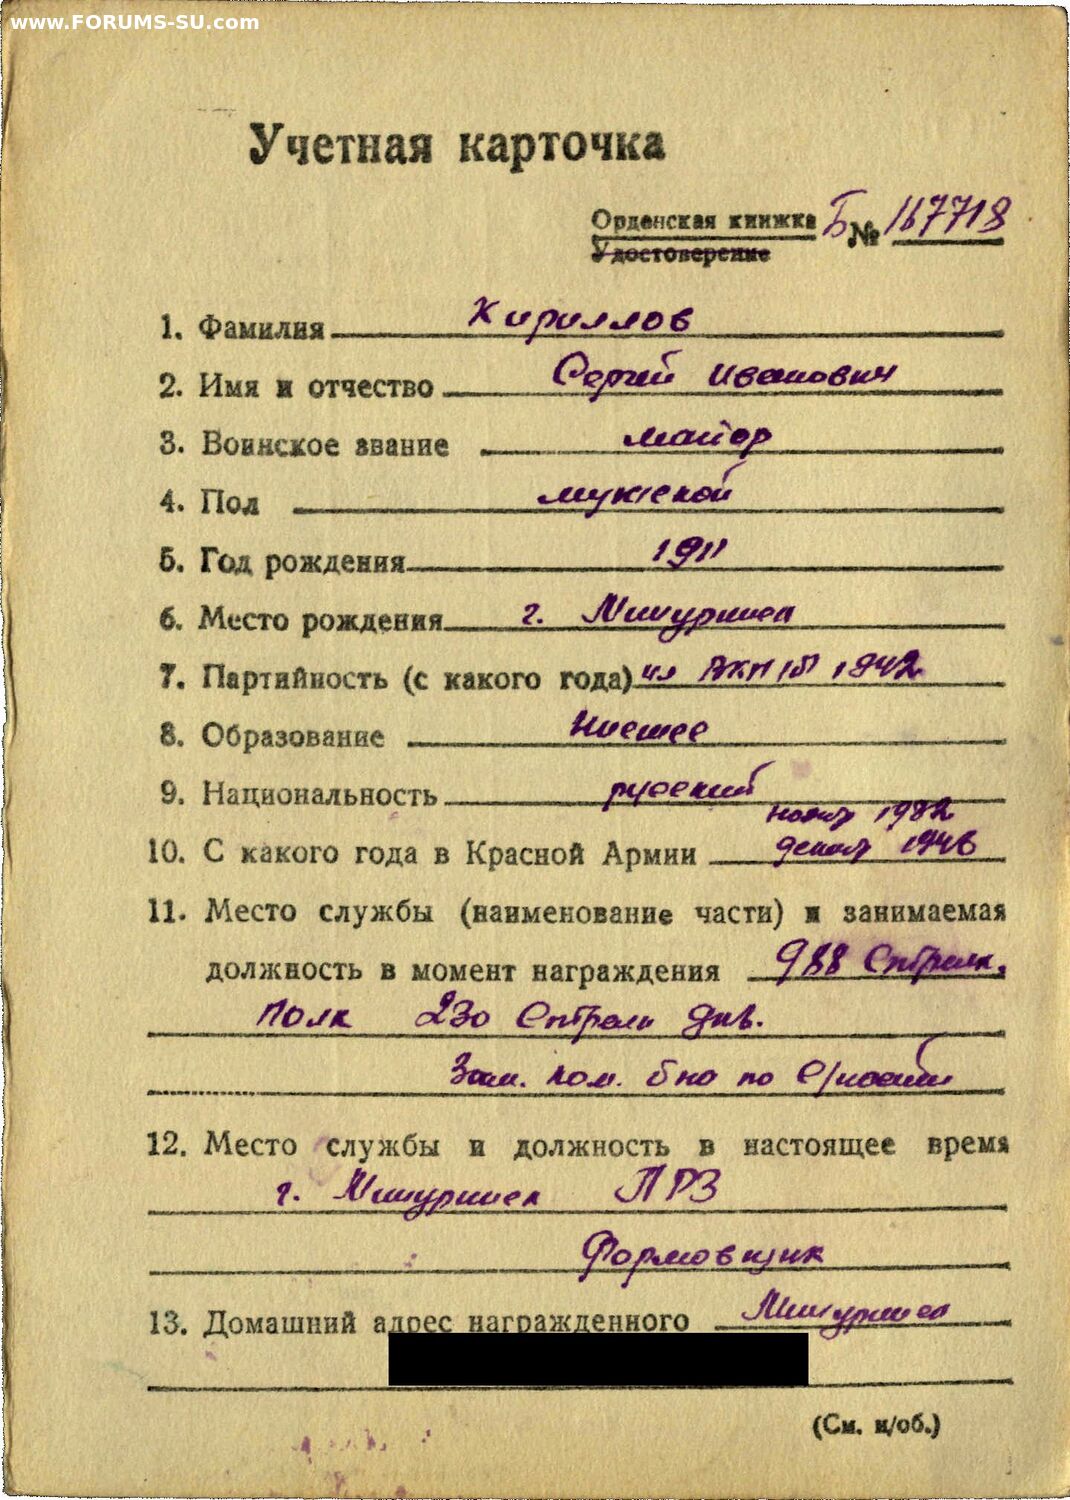 www.FORUMS-SU.com
Учетная карточка
Орденская книжка Б № 167718
Удостоверение
1. Фамилия Кириллов
2. Имя и отчество Сергей Иванович
3. Воинское звание майор
4. Пол мужской
5. Год рождения 1911
6. Место рождения г. Мичуринск
7. Партийность (с какого года) чл ВКП(б) 1942
8. Образование Низшее
9. Национальность русский
10. С какого года в Красной Армии
11. Место службы (наименование части) и занимаемая
должность в момент награждения 988 Стрелк.
полк 230 Стрелк див.
Зам. ком. б-на по
12. Место службы и должность в настоящее время
г. Мичуринск ПРЗ
Формовщик
13. Домашний адрес награжденного Мичуринск
(См. н/об.)